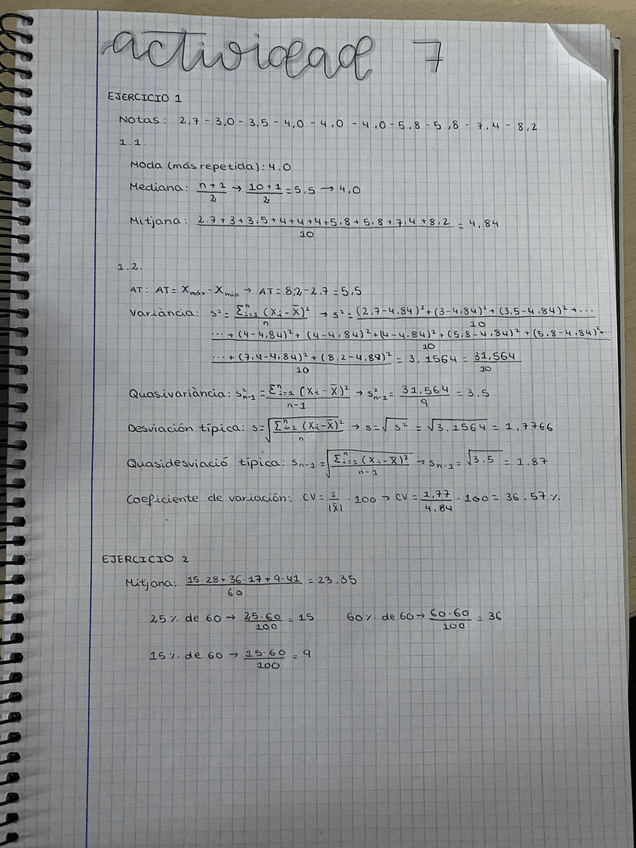 actividad 7
EJERCICIO 1
Notas: 2,7 - 3,0 - 3,5 - 4,0 - 4,0 - 4,0 - 5,8 - 5,8 - 7,4 - 8,2
1.1.
Moda (más repetida): 4,0
Mediana: n+1/2 → 10+1/2 = 5,5 → 4,0
Mitjana: 2,7+3+3,5+4+4+4+5,8+5,8+7,4+8,2/10 = 4,84
1.2.
AT: AT = Xmáx - Xmin → AT = 8,2 - 2,7 = 5,5
Variància: s² = Σⁿᵢ₌₁ (Xᵢ - X̄)²/n → s² = (2,7-4,84)² + (3-4,84)² + (3,5-4,84)² + .../10
... + (4-4,84)² + (4-4,84)² + (4-4,84)² + (5,8-4,84)² + (5,8-4,84)² .../10
... + (7,4-4,84)² + (8,2-4,84)²/10 = 3,1564 = 31,564/10
Quasivariància: s²n-1 = Σⁿᵢ₌₁ (Xᵢ - X̄)²/n-1 → s²n-1 = 31,564/9 = 3,5
Desviación típica: s = √Σⁿᵢ₌₁ (Xᵢ - X̄)²/n → s = √s² = √3,1564 = 1,7766
Quasidesviació típica: sn-1 = √Σⁿᵢ₌₁ (Xᵢ - X̄)²/n-1 → sn-1 = √3,5 = 1,87
Coeficiente de variación: CV = s/|X̄| · 100 → CV = 1,77/4,84 · 100 = 36,57 %
EJERCICIO 2
Mitjana: 15·28+36·17+9·41/60 = 23,35
25% de 60 → 25·60/100 = 15 60% de 60 → 60·60/100 = 36
15% de 60 → 15·60/100 = 9